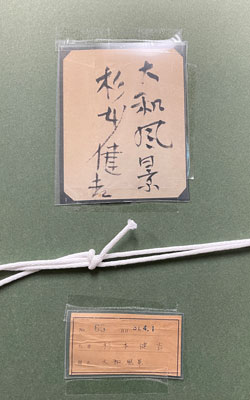 大和風景
杉本健吉
No. 65
杉本健吉
大和風景